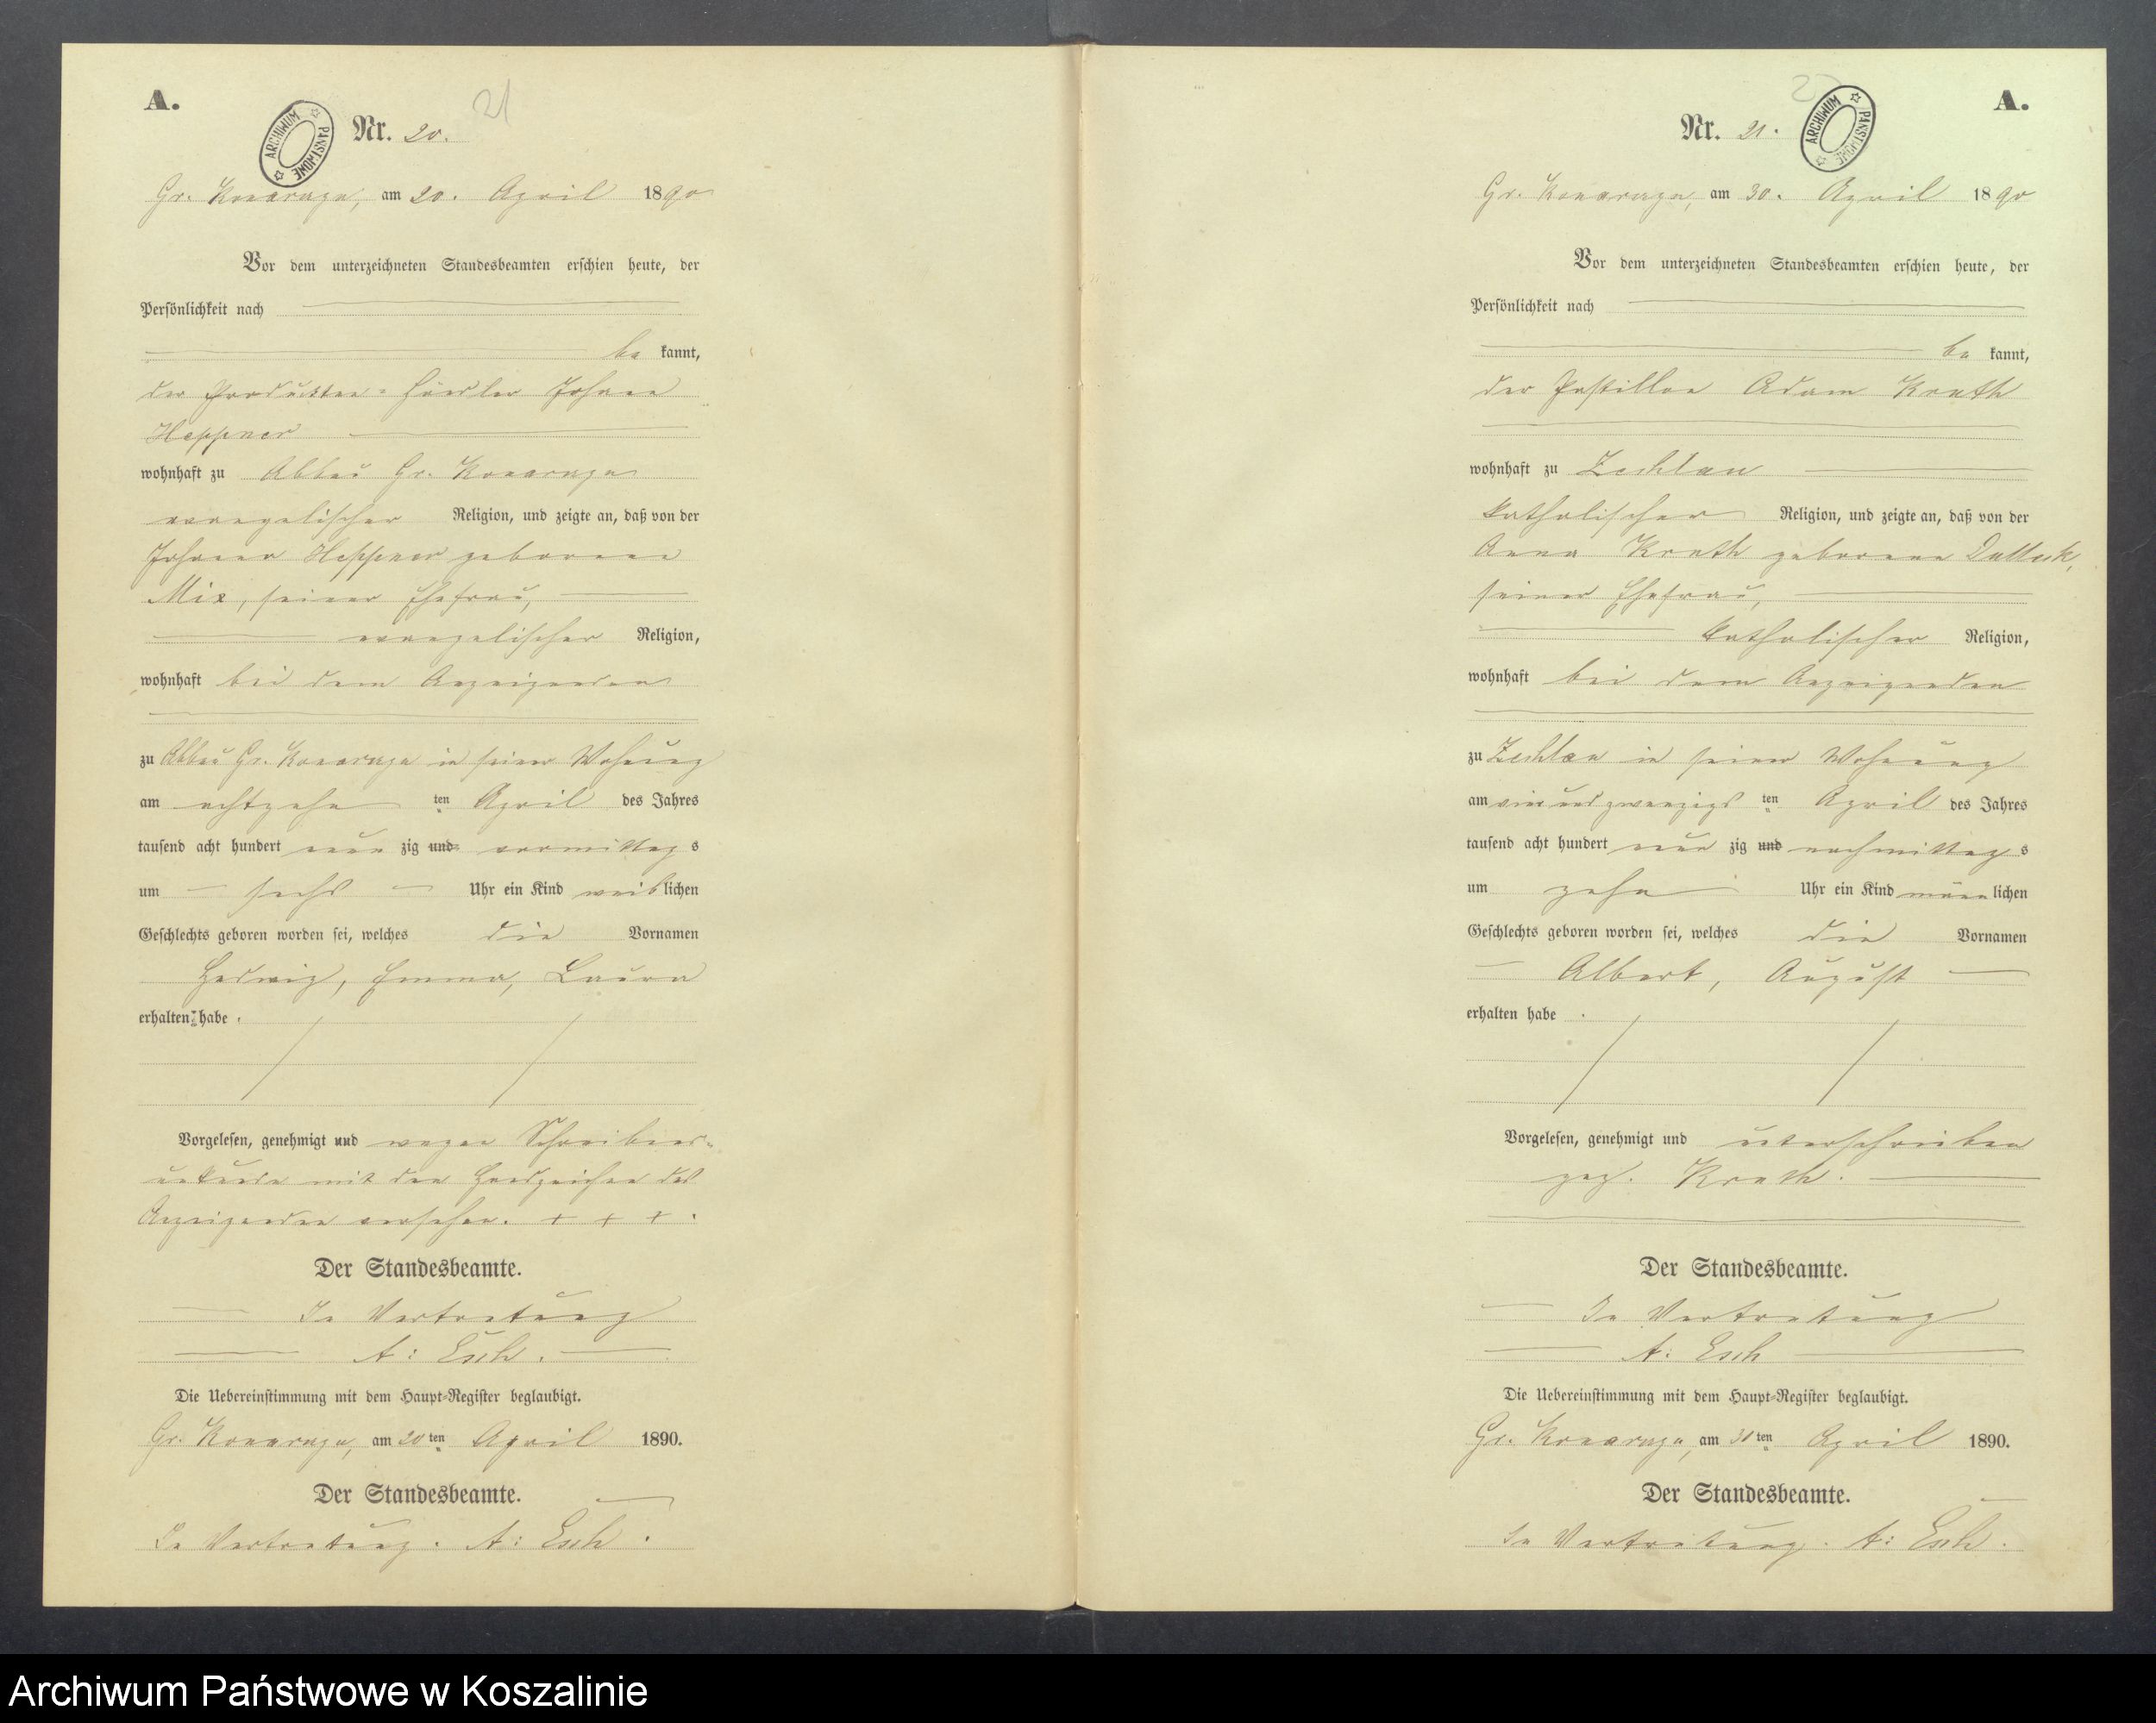 A.
ARCHIWUM PAŃSTWOWE
21
Nr. 20.
Gr. Konarczyn, am 20. April 1890
Vor dem unterzeichneten Standesbeamten erschien heute, der
Persönlichkeit nach
be kannt,
der Produkten-Händler Johann
Heppner
wohnhaft zu Abbau Gr. Konarczyn
evangelischer Religion, und zeigte an, daß von der
Johanna Heppner geborene
Mix, seiner Ehefrau,
evangelischer Religion,
wohnhaft bei dem Anzeigenden
zu Abbau Gr. Konarczyn in seiner Wohnung
am achtzehn ten April des Jahres
tausend acht hundert neun zig und vormittag s
um sechs Uhr ein Kind weiblichen
Geschlechts geboren worden sei, welches die Vornamen
Hedwig, Emma, Laura
erhalten habe.
Vorgelesen, genehmigt und wegen Schreibens-
unkunde mit den Handzeichen des
Anzeigenden versehen. + + +.
Der Standesbeamte.
In Vertretung
A: Esch.
Die Uebereinstimmung mit dem Haupt-Register beglaubigt.
Gr. Konarczyn, am 20ten April 1890.
Der Standesbeamte.
In Vertretung. A: Esch.
A.
ARCHIWUM PAŃSTWOWE
Nr. 21.
Gr. Konarczyn, am 30. April 1890
Vor dem unterzeichneten Standesbeamten erschien heute, der
Persönlichkeit nach
be kannt,
der Postillon Adam Knuth
wohnhaft zu Zechlau
katholischer Religion, und zeigte an, daß von der
Anna Knuth geborene Dulleck,
seiner Ehefrau,
katholischer Religion,
wohnhaft bei dem Anzeigenden
zu Zechlau in seiner Wohnung
am einundzwanzigsten April des Jahres
tausend acht hundert neun zig und nachmittag s
um zehn Uhr ein Kind männlichen
Geschlechts geboren worden sei, welches die Vornamen
Albert, August
erhalten habe.
Vorgelesen, genehmigt und unterschrieben
gez. Knuth.
Der Standesbeamte.
In Vertretung
A: Esch
Die Uebereinstimmung mit dem Haupt-Register beglaubigt.
Gr. Konarczyn, am 30ten April 1890.
Der Standesbeamte.
In Vertretung. A: Esch.
Archiwum Państwowe w Koszalinie